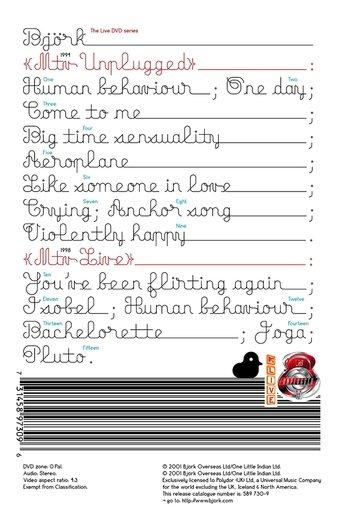 Björk The Live DVD series
1994
«Mtv Unplugged» :
One Two
Human behaviour ; One day;
Three
Come to me ;
Four
Big time sensuality ;
Five
Aeroplane ;
Six
Like someone in love ;
Seven Eight
Crying; Anchor song ;
Nine
Violently happy .
1998
«Mtv Live» :
Ten
You've been flirting again ;
Eleven Twelve
Isobel ; Human behaviour ;
Thirteen Fourteen
Bachelorette ; Joga;
Fifteen
Pluto.
LIVE
7 31458 97309 6
DVD zone: 0 Pal.
Audio: Stereo.
Video aspect ratio: 4:3
Exempt from Classification.
© 2001 Bjork Overseas Ltd/One Little Indian Ltd.
© 2001 Bjork Overseas Ltd/One Little Indian Ltd.
Exclusively licensed to Polydor (UK) Ltd, a Universal Music Company
for the world excluding the UK, Iceland & North America.
This release catalogue number is: 589 730-9
~ go to: http://www.bjork.com